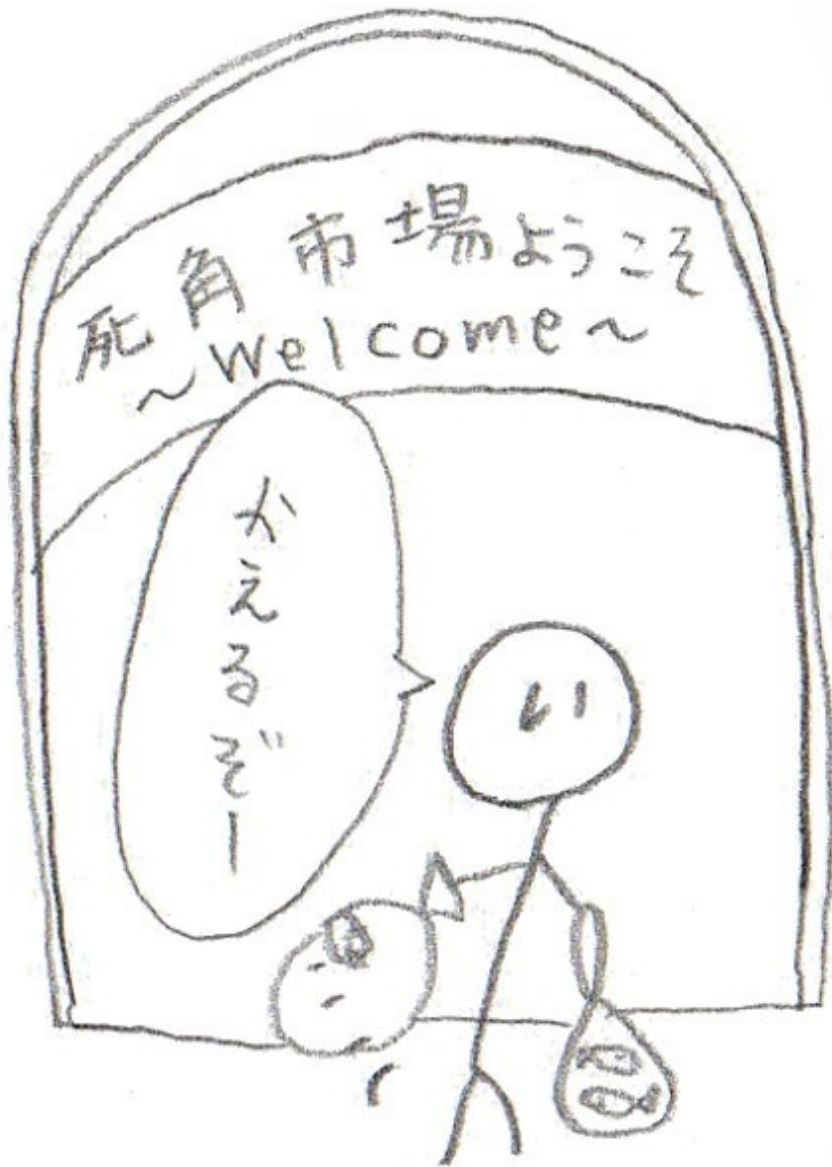 死角市場ようこそ
~Welcome~
かえるぞー